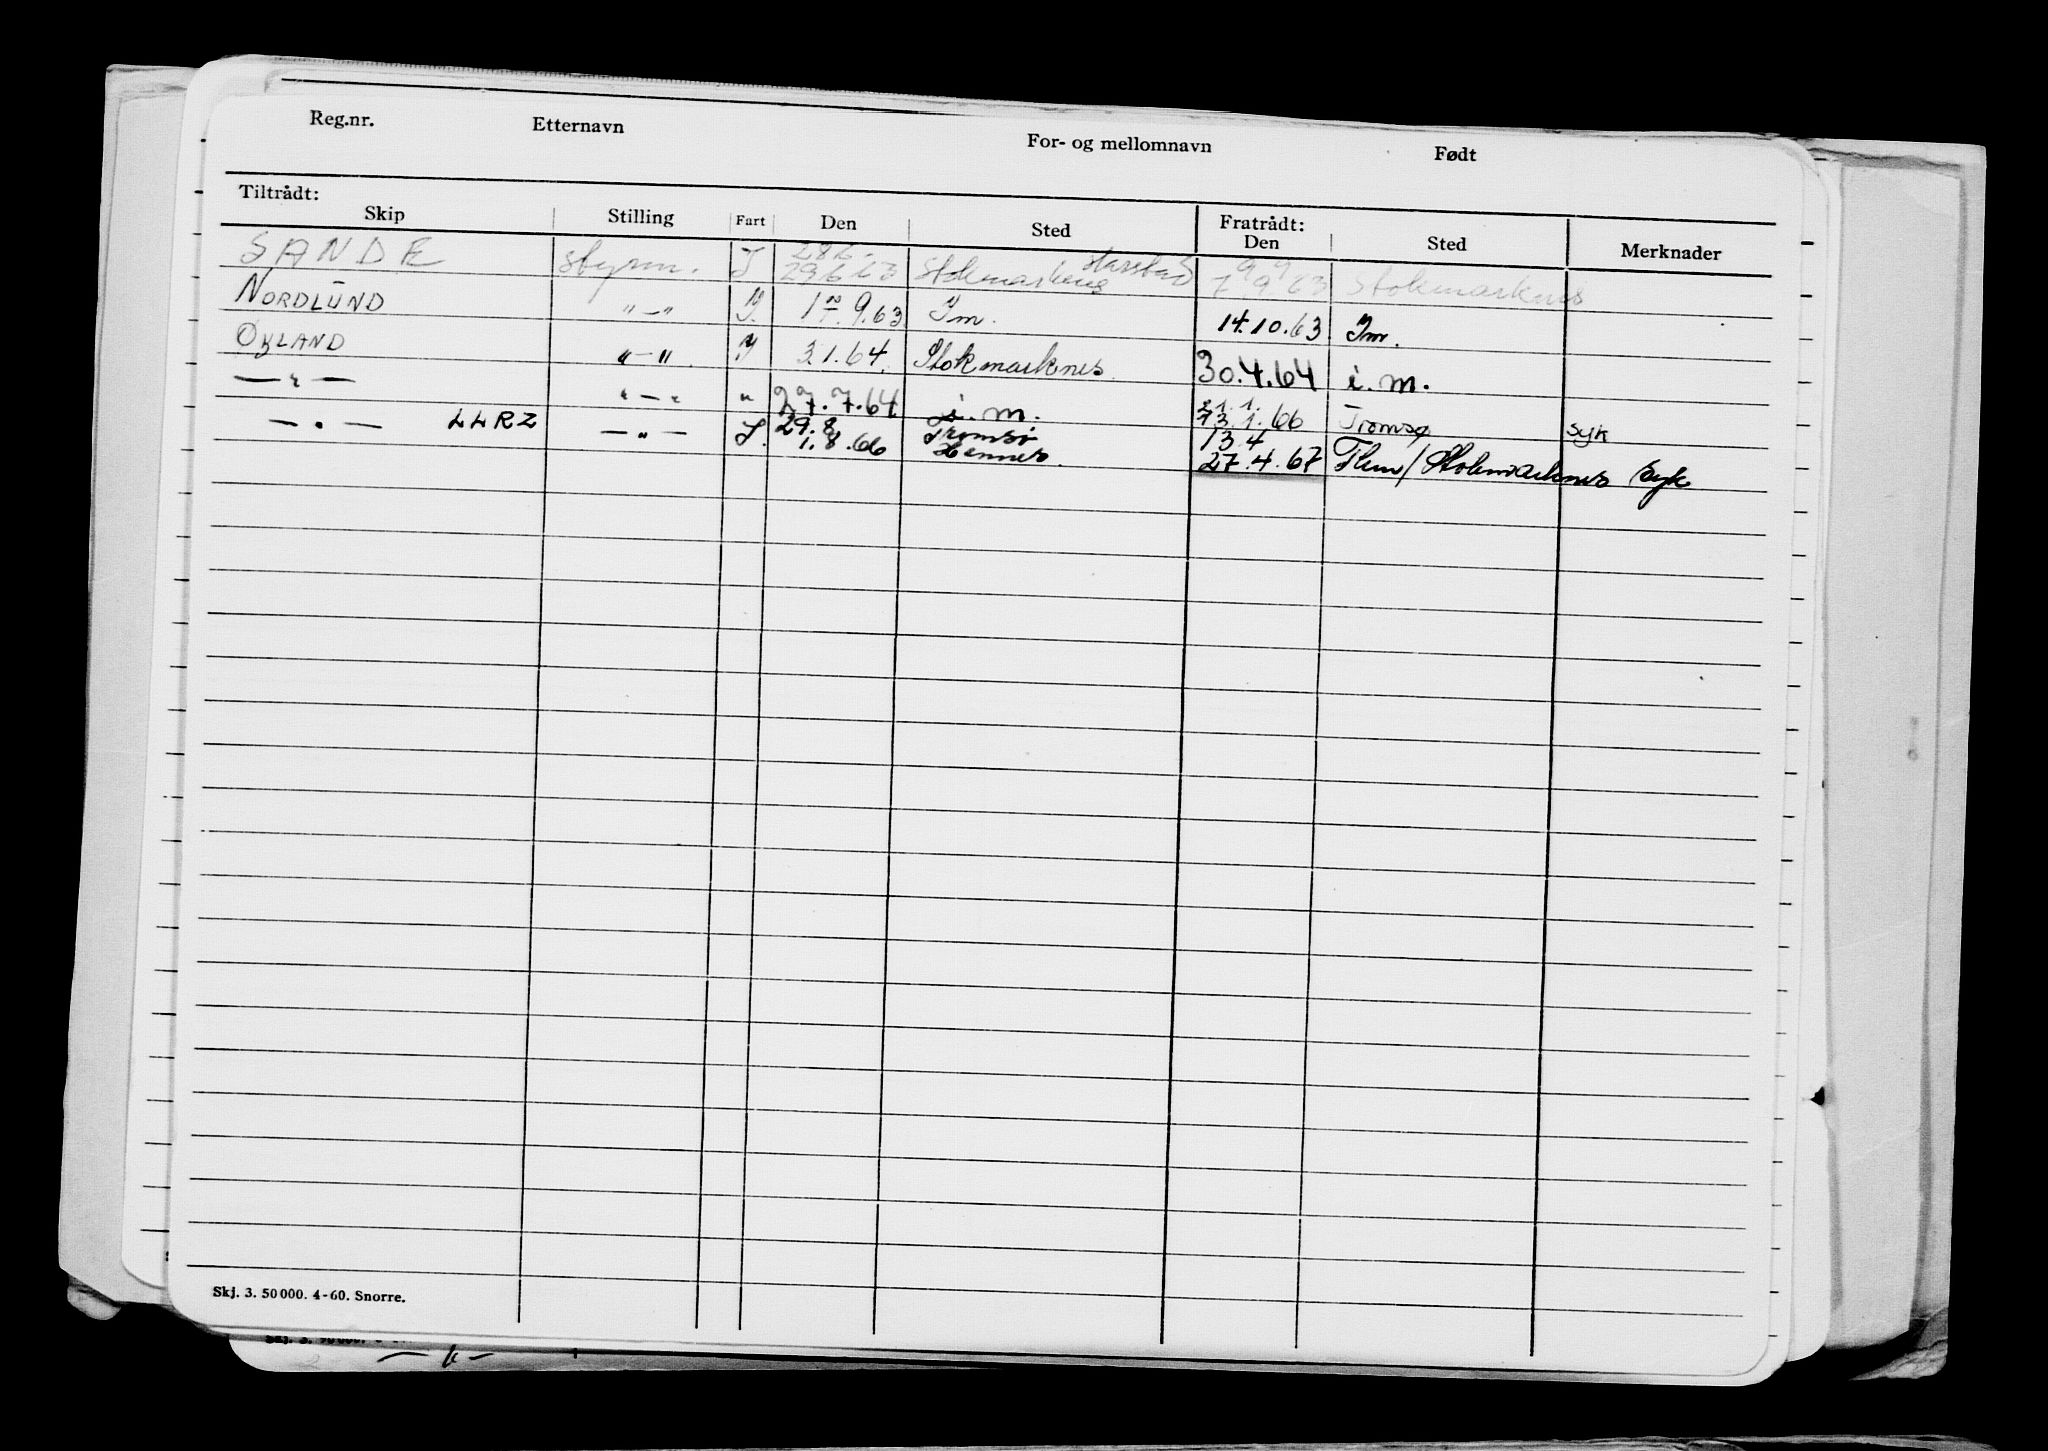 Reg.nr. Etternavn For- og mellomnavn Født
Tiltrådt: Fratrådt:
Skip Stilling Fart Den Sted Den Sted Merknader
28 6. Harstad 9 9
SANDE styrm. J 29 6 63 Stokmarknes 7 9 63 Stokmarknes
NORDLUND " - " J. 17. 9.63 Im. 14.10.63 Im.
ØKLAND " - " J 3.1.64. Stokmarknes 30.4.64 i. m.
— " — " - " " 27.7.64 i. m. 13.1.66 Tromsø syk
— " — LLRZ — " — J. 29.8 Tromsø 13 4
1.8.66 27.4.67 Flem / Stokmarknes Syk
Skj. 3. 50 000. 4-60. Snorre.
— " —